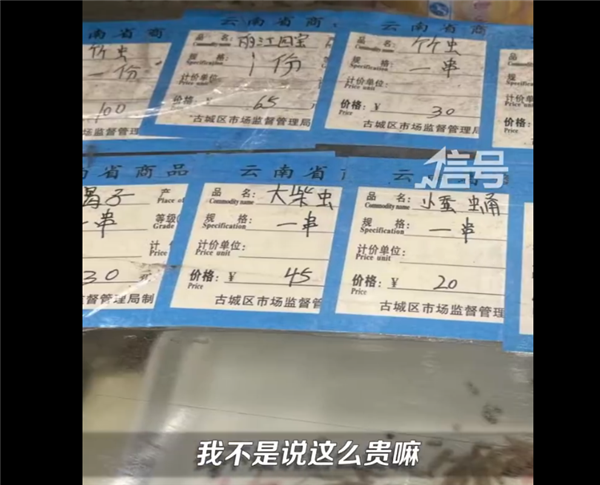 云南省商
竹虫
一份
100
市场监督管理局
云南省商
品名:
Commodity name
丽江国宝
规格:
Specification
1份
计价单位:
Price unit
价格:¥
Price
65
古城区市场监督管理局
云南省商
品名:
Commodity name
竹虫
规格:
Specification
一串
计价单位:
Price unit
价格:¥
Price
30
古城区市场监督管理局
南省商品
蝎子
产
Place of
一串
等级
Grade
计
30
监督管理局制
云南省
品名:
Commodity name
大柴虫
规格:
Specification
一串
计价单位:
Price unit
价格:¥
Price
45
古城区市场监督管
信号
云南省
品名:
Commodity name
小蚕蛹
规格:
Specification
一串
计价单位:
Price unit
价格:¥
Price
20
古城区市场监督管理
我不是说这么贵嘛